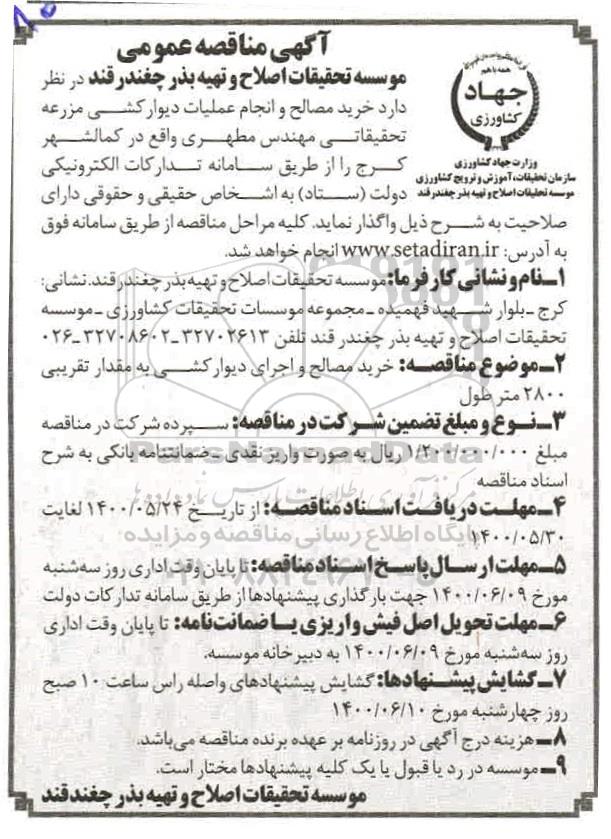 آگهی مناقصه عمومی
فرزندان میهن در پرتو قرآن
همه با هم
جهاد
کشاورزی
وزارت جهاد کشاورزی
سازمان تحقیقات، آموزش و ترویج کشاورزی
موسسه تحقیقات اصلاح و تهیه بذر چغندر قند
موسسه تحقیقات اصلاح و تهیه بذر چغندر قند در نظر
دارد خرید مصالح و انجام عملیات دیوارکشی مزرعه
تحقیقاتی مهندس مطهری واقع در کمالشهر
کرج را از طریق سامانه تدارکات الکترونیکی
دولت (ستاد) به اشخاص حقیقی و حقوقی دارای
صلاحیت به شرح ذیل واگذار نماید. کلیه مراحل مناقصه از طریق سامانه فوق
به آدرس: www.setadiran.ir انجام خواهد شد.
۱ـ نام و نشانی کارفرما: موسسه تحقیقات اصلاح و تهیه بذر چغندر قند. نشانی:
کرج ـ بلوار شهید فهمیده ـ مجموعه موسسات تحقیقات کشاورزی ـ موسسه
تحقیقات اصلاح و تهیه بذر چغندر قند تلفن ۳۲۷۰۲۶۱۳ـ۳۲۷۰۸۶۰۲ـ۰۲۶
۲ـ موضوع مناقصه: خرید مصالح و اجرای دیوارکشی به مقدار تقریبی
۲۸۰۰ متر طول
۳ـ نوع و مبلغ تضمین شرکت در مناقصه: سپرده شرکت در مناقصه
مبلغ ۱/۲۰۰/۰۰۰/۰۰۰ ریال به صورت واریز نقدی ـ ضمانتنامه بانکی به شرح
اسناد مناقصه
۴ـ مهلت دریافت اسناد مناقصه: از تاریخ ۱۴۰۰/۰۵/۲۴ لغایت
۱۴۰۰/۰۵/۳۰
۵ـ مهلت ارسال پاسخ اسناد مناقصه: تا پایان وقت اداری روز سه‌شنبه
مورخ ۱۴۰۰/۰۶/۰۹ جهت بارگذاری پیشنهادها از طریق سامانه تدارکات دولت
۶ـ مهلت تحویل اصل فیش واریزی یا ضمانت‌نامه: تا پایان وقت اداری
روز سه‌شنبه مورخ ۱۴۰۰/۰۶/۰۹ به دبیرخانه موسسه.
۷ـ گشایش پیشنهادها: گشایش پیشنهادهای واصله راس ساعت ۱۰ صبح
روز چهارشنبه مورخ ۱۴۰۰/۰۶/۱۰
۸ـ هزینه درج آگهی در روزنامه بر عهده برنده مناقصه می‌باشد.
۹ـ موسسه در رد یا قبول یا یک کلیه پیشنهادها مختار است.
موسسه تحقیقات اصلاح و تهیه بذر چغندقند
ParsNamadData
پایگاه اطلاع رسانی مناقصه و مزایده